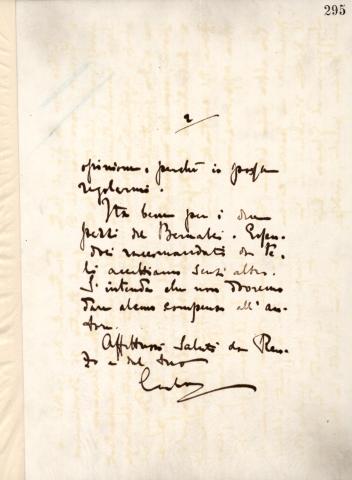 295
2
opinione, perchè io possa
regolarmi.
Sta bene per i due
pezzi del Bernabei. Essen-
doci raccomandati da te,
li accettiamo senz'altro.
S'intende che non dovremo
dare alcun compenso all'au-
tore.
Affettuosi saluti da Ren-
zo e dal tuo